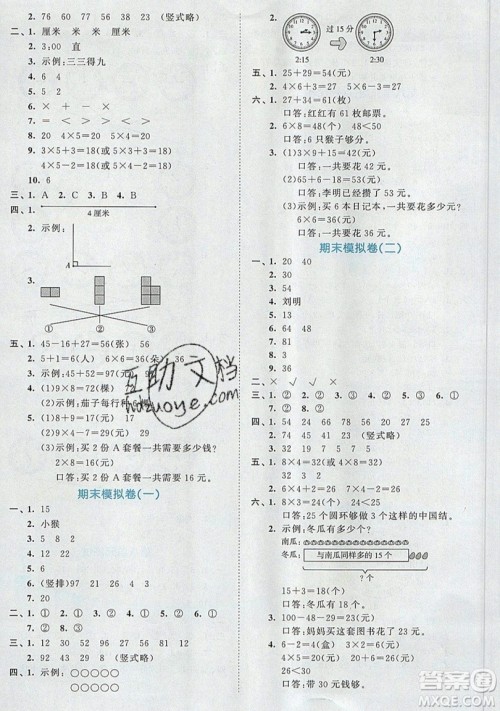 2. 76 66 58 71 91 (竖式略)
二、1. 厘米 米 米 厘米
2. 3:00 直
3. 示例:三三得九
4. 6 4
5. 5 2
6. × ÷ - + ×
7. = < > < > >
8. 20 4×5=20 5×4=20
9. 3×5+3=18(或5×3+3=18)
4×5-2=18(或5×4-2=18)
10. 6
三、1. A B C A
四、1.
4厘米
2. 示例:
A
3.
① ② ③
五、1. 45-16+27=56(张) 56
2. 5+1=6(人) 6×6=36 36
3. 示例:45+52=97(元) 97
4. (1)9×8=72(棵)
(2)示例:茄子每行种
5. (1)8+9=17(元)
(2)9×4-7=29(元)
(3)示例:买2份A套餐一共需要多少钱?
口答:买2份A套餐一共需要16元。
期末模拟卷(一)
一、1. 15
2. 小猴
3. 3 2
4. 6
5. 9 6 4
6. (竖排)97 23 31 26
7. 20
二、1. ① 2. ③ 3. ① 4. ① 5. ① 6. ①
7. ② 8. ③
三、1. 12 30 52 96 27 56 36 31
2. 92 43 29 8 (竖式略)
四、1. 示例:
2.
过15分
2:15
2:30
五、1. 25+29=54(元)
2. 4×6+3=27 5×6-3=27
六、1. 27+34=61(枚)
口答:红红有61枚邮票。
2. 6×8=48(个) 48<50
口答:6只猴子够分。
3. (1)3×9+15=42(元)
口答:一共要花42元。
(2)68-16=52(元)
口答:李明已经攒了52元。
(3)示例:买6本日记本,一共要花多少元?
口答:一共要花36元。
期末模拟卷(二)
一、1. 20 40
4. 刘明
8. 21
9. 36
二、× √ √ ×
三、1. ② 2. ② 3. ② 4. ③ 5. ② 6. ①
四、1. 54 27 15 24 9 36 42 30
2. 74 51 43 (竖式略)
五、1. 8×4=32(或4×8=32)
32
六、1. 3×8=24(个) 24<25
口答:25个圆环够做3个这样的中国结。
2. 示例:冬瓜有多少个?
南瓜:
冬瓜:
与南瓜同样多的15个
?个
15+3=18(个)
口答:冬瓜有18个。
3. 100-48-29=23(元)
口答:妈妈买这套图书花了23元。
4. 示例:6×4=24(元) 24+2=26(元)
26<30
口答:带30元钱够。
互助文档
hdzuoye.com
答案圈
MXQE.COM